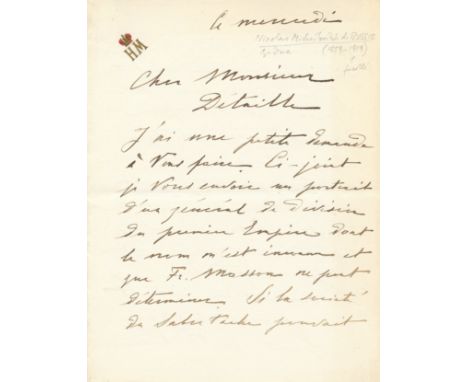 Ce mercredi
HM
Nicolas Mikhailovitch de Russie
(1859-1919)
fusillé
Cher Monsieur
Détaille
J'ai une petite demande
à vous faire. Ci-joint
je vous envoie un portrait
d'un général de division
du premier Empire dont
le nom m'est inconnu et
que Fr. Masson ne peut
déterminer. Si la société
du Sabretache pouvait